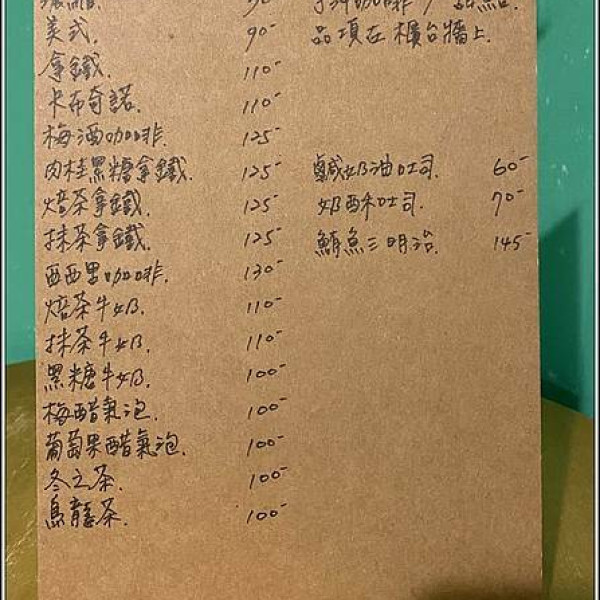 美式. 90-
拿鐵. 110-
卡布奇諾. 110-
梅酒咖啡. 125-
肉桂黑糖拿鐵. 125-
焙茶拿鐵. 125-
抹茶拿鐵. 125-
西西里咖啡. 130-
焙茶牛奶. 110-
抹茶牛奶. 110-
黑糖牛奶. 100-
梅醋氣泡. 100-
葡萄果醋氣泡. 100-
冬之茶. 100-
烏龍茶. 100-
手沖咖啡/甜點.
品項在櫃台牆上.
鹹奶油吐司. 60-
奶酥吐司. 70-
鮪魚三明治. 145-